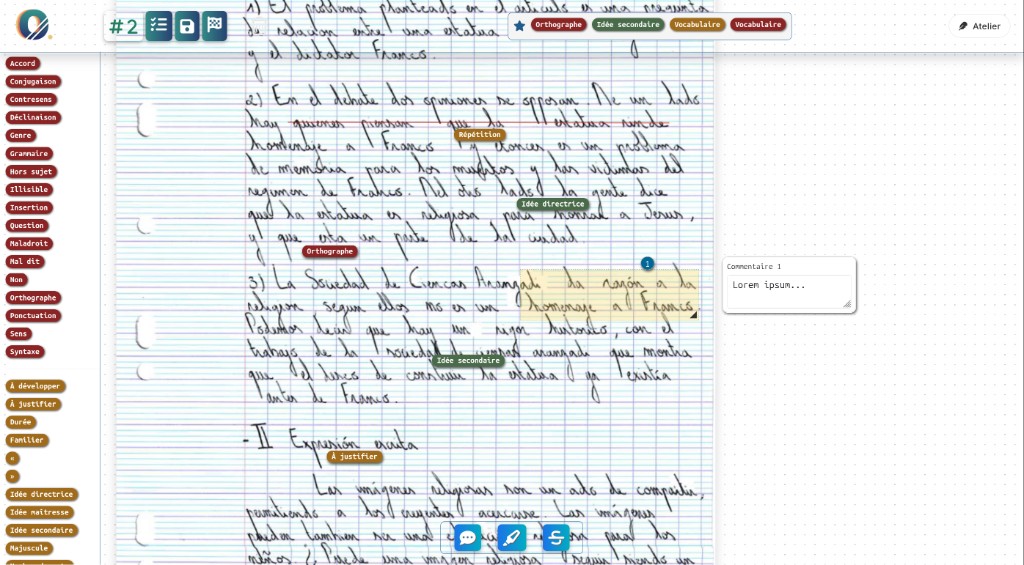 #2
Orthographe
Idée secondaire
Vocabulaire
Vocabulaire
Atelier
Accord
Conjugaison
Contresens
Déclinaison
Genre
Grammaire
Hors sujet
Illisible
Insertion
Question
Maladroit
Mal dit
Non
Orthographe
Ponctuation
Sens
Syntaxe
À développer
À justifier
Durée
Familier
«
»
Idée directrice
Idée maîtresse
Idée secondaire
Majuscule
1) El problema planteado en el articulo es una
relación entre una estatua
y el dictator Franco.
2) En el debate dos opiniones se opposan. De un lado
hay quienes piensan que la estatua rinde
Répétition
homenaje a Franco y etonces es un problema
de memoria para los muertos y las victimas del
regimen de Franco. Del otro lado la gente dice
Idée directrice
que la estatua es religiosa para honrar a Jesus,
y que esta un parte de la ciudad.
Orthographe
3) La Sociedad de Ciencas Aranzadi da razón a la
religion segun ellos no es un homenaje a Franco.
Podemos decir que hay un rigor historico, con el
trabajo de la sociedad de aranzadi que montra
Idée secondaire
que el de construir la estatua ya existia
antes de Franco.
- II Expresión escrita
À justifier
Las imágenes religiosas son un acto de compartir,
permitiendo a los creyentes acercarse. Las imagenes
pueden tambien ser una para los
niños. ¿Puede una imagen religiosa seguir siendo un
1
Commentaire 1
Lorem ipsum...